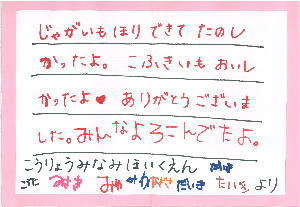 じゃがいもほりできて たのし
かったよ。こふきいも おいし
かったよ♥ ありがとうございま
した。みんなよろこんでたよ。
こうりょうみなみほいくえん
みゆ みか だいき たいき より